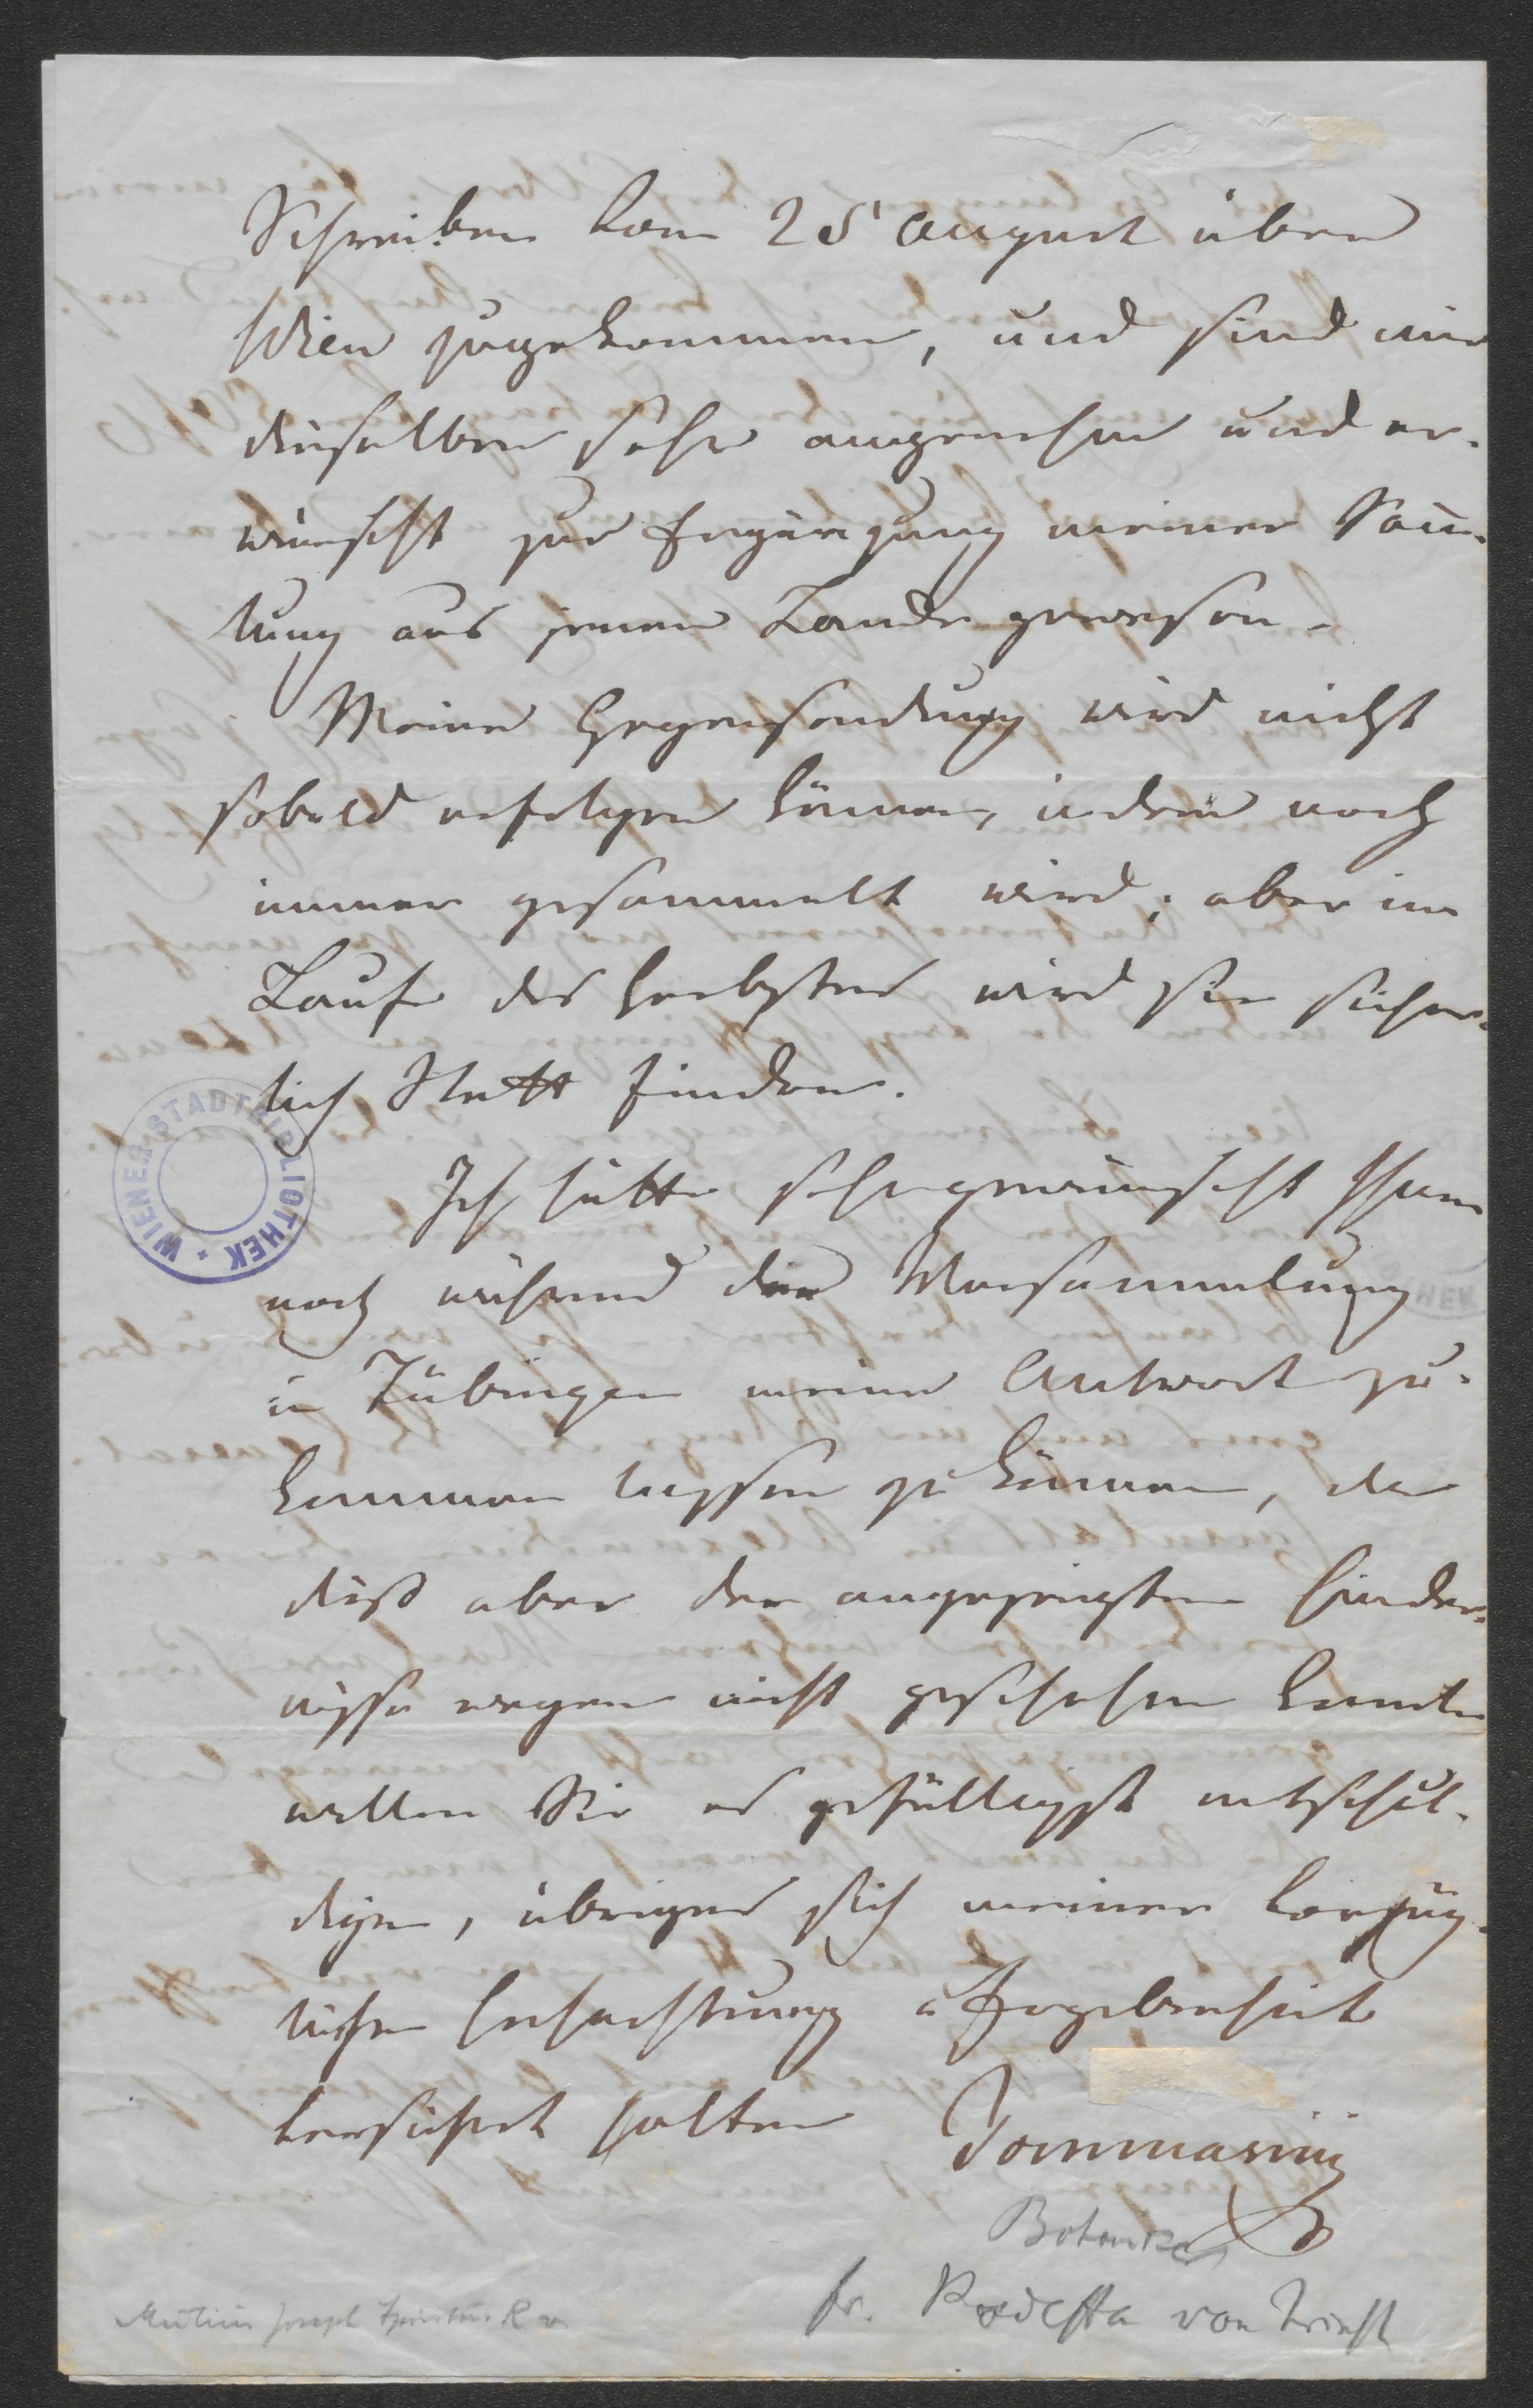 Schreiben vom 25' August über
Wien zugekommen, und sind mir
dieselben sehr angenehm und er-
wünscht zur Ergänzung meiner Sam-
lung aus jenem Lande gewesen.
Meine Gegensendung wird nicht
sobald erfolgen können, indem noch
immer gesammelt wird; aber im
Laufe des Herbstes wird sie sicher-
lich Statt finden.
Ich hätte sehr gewünscht Ihnen
noch während der Versammlung
in Tübingen meine Antwort zu-
kommen lassen zu können, da
dieß aber der angezeigten Hinder-
nisse wegen nicht geschehen konnte
wollen Sie es gefälligst entschul-
digen, übrigens sich meiner vorzüg-
lichen Hochachtung u Ergebenheit
versichert halten
Tommasini
Botaniker
fr. Podestà von Triest
Mutius Joseph Spiritus R v
WIENER STADTBIBLIOTHEK
HEK